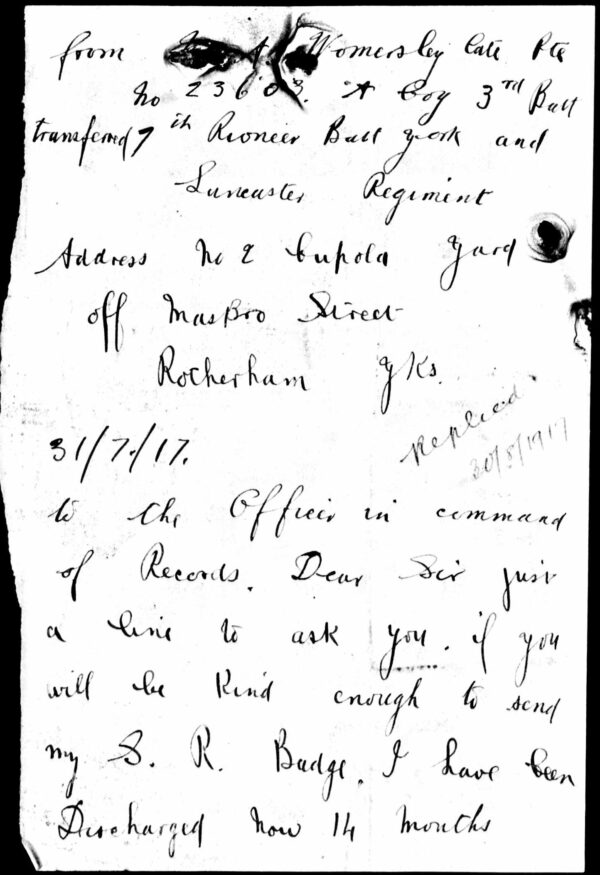 from Womersley late Pte
No 23603. A Coy 3rd Batt
transferred 7th Pioneer Batt york and
Lancaster Regiment
Address No 2 Cupola Yard
off MasBro Street
Rotherham Yks.
Replied
30/8/1917
31/7/17.
to the Officer in command
of Records. Dear Sir just
a line to ask you. if you
will be Kind enough to send
my S. R. Badge. I have been
Discharged now 14 months